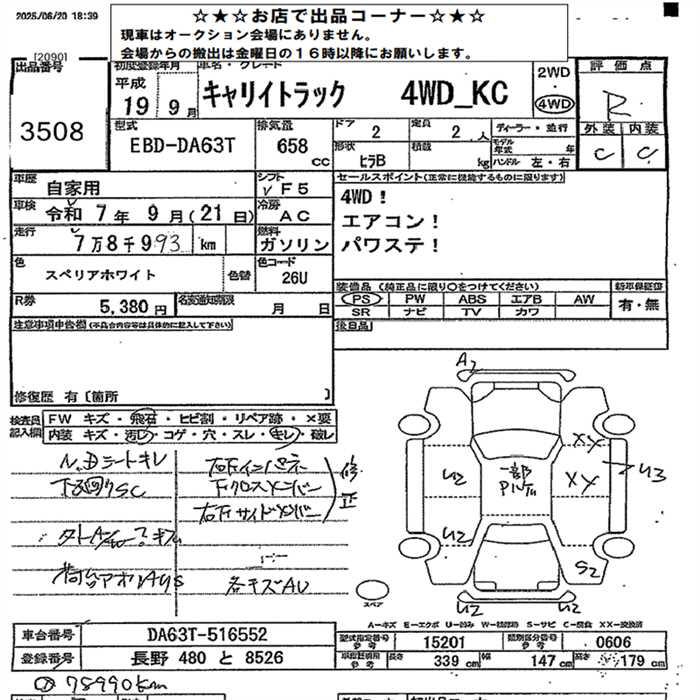 2025/06/20 18:39
☆★☆お店で出品コーナー☆★☆
現車はオークション会場にありません。
会場からの搬出は金曜日の16時以降にお願いします。
[2090]
出品番号
3508
初度登録年月
平成
19 9月
車名・グレード
キャリイトラック 4WD_KC
2WD
・
4WD
評価点
R
外装 内装
C C
型式
EBD-DA63T
排気量
658 CC
ドア
2
定員
2 人
ディーラー・並行
モデル年式 年
形状
ヒラB
積載
kg
ハンドル 左・右
車歴
自家用
シフト
F5
車検
令和 7年 9月(21日)
冷房
AC
走行
7万8千993 km
燃料
ガソリン
色
スペリアホワイト
色替
色コード
26U
R券
5,380円
名変通知期限
月 日
セールスポイント(正常に機能するものに限ります)
4WD!
エアコン!
パワステ!
装備品(純正品に限り○をつけてください)
PS PW ABS エアB AW
SR ナビ TV カワ
新車保証書
有・無
後日品
注意事項申告欄(不具合内容等は具体的に記入して下さい)
修復歴 有〔箇所 〕
検査員記入欄
FW キズ・飛石・ヒビ割・リペア跡・×要
内装 キズ・汚レ・コゲ・穴・スレ・キレ・破レ
N,Dシートキレ
下廻りSC
右Fインパネ
Fクロスメンバー
右Fサイドメンバー
修正
荷台アオリAUS
各キズAU
A2
XY
U2
一部PINTU
XY
U3
U2
S2
U2
U2
スペア
A-キズ E-エクボ U-凹み W-補修跡 S-サビ C-腐食 XX-交換済
車台番号
DA63T-516552
登録番号
長野 480 と 8526
型式指定番号
参考
15201
類別区分番号
参考
0606
車検証積用
参考
長さ
339 cm
幅
147 cm
高さ
179 cm
78990km